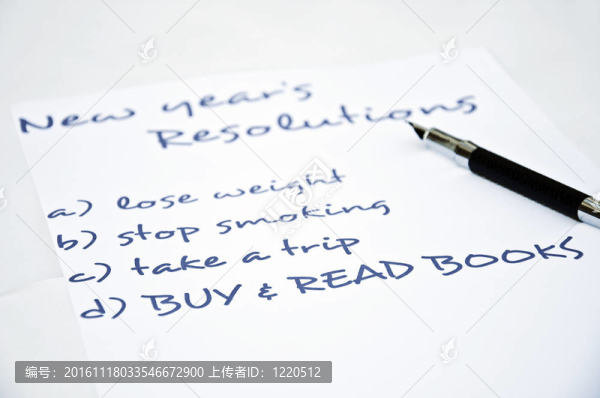 New year's
Resolutions
a) lose weight
b) stop smoking
c) take a trip
d) BUY & READ BOOKS
编号: 20161118033546672900 上传者ID: 1220512